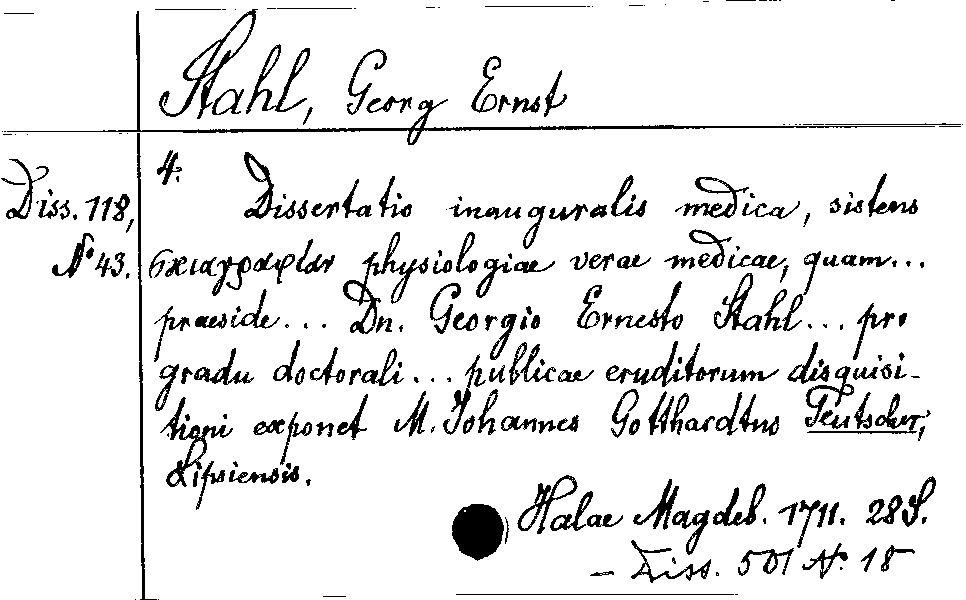 Stahl, Georg Ernst
4.
Diss. 118,
N° 43.
Dissertatio inauguralis medica, sistens
σκιαγραφίαν physiologiae verae medicae, quam...
praeside... Dn. Georgio Ernesto Stahl... pro
gradu doctorali... publicae eruditorum disquisi-
tioni exponet M. Johannes Gotthardtus Teutscher,
Lipsiensis.
Halae Magdeb. 1711. 28 S.
– Diss. 501 N° 18